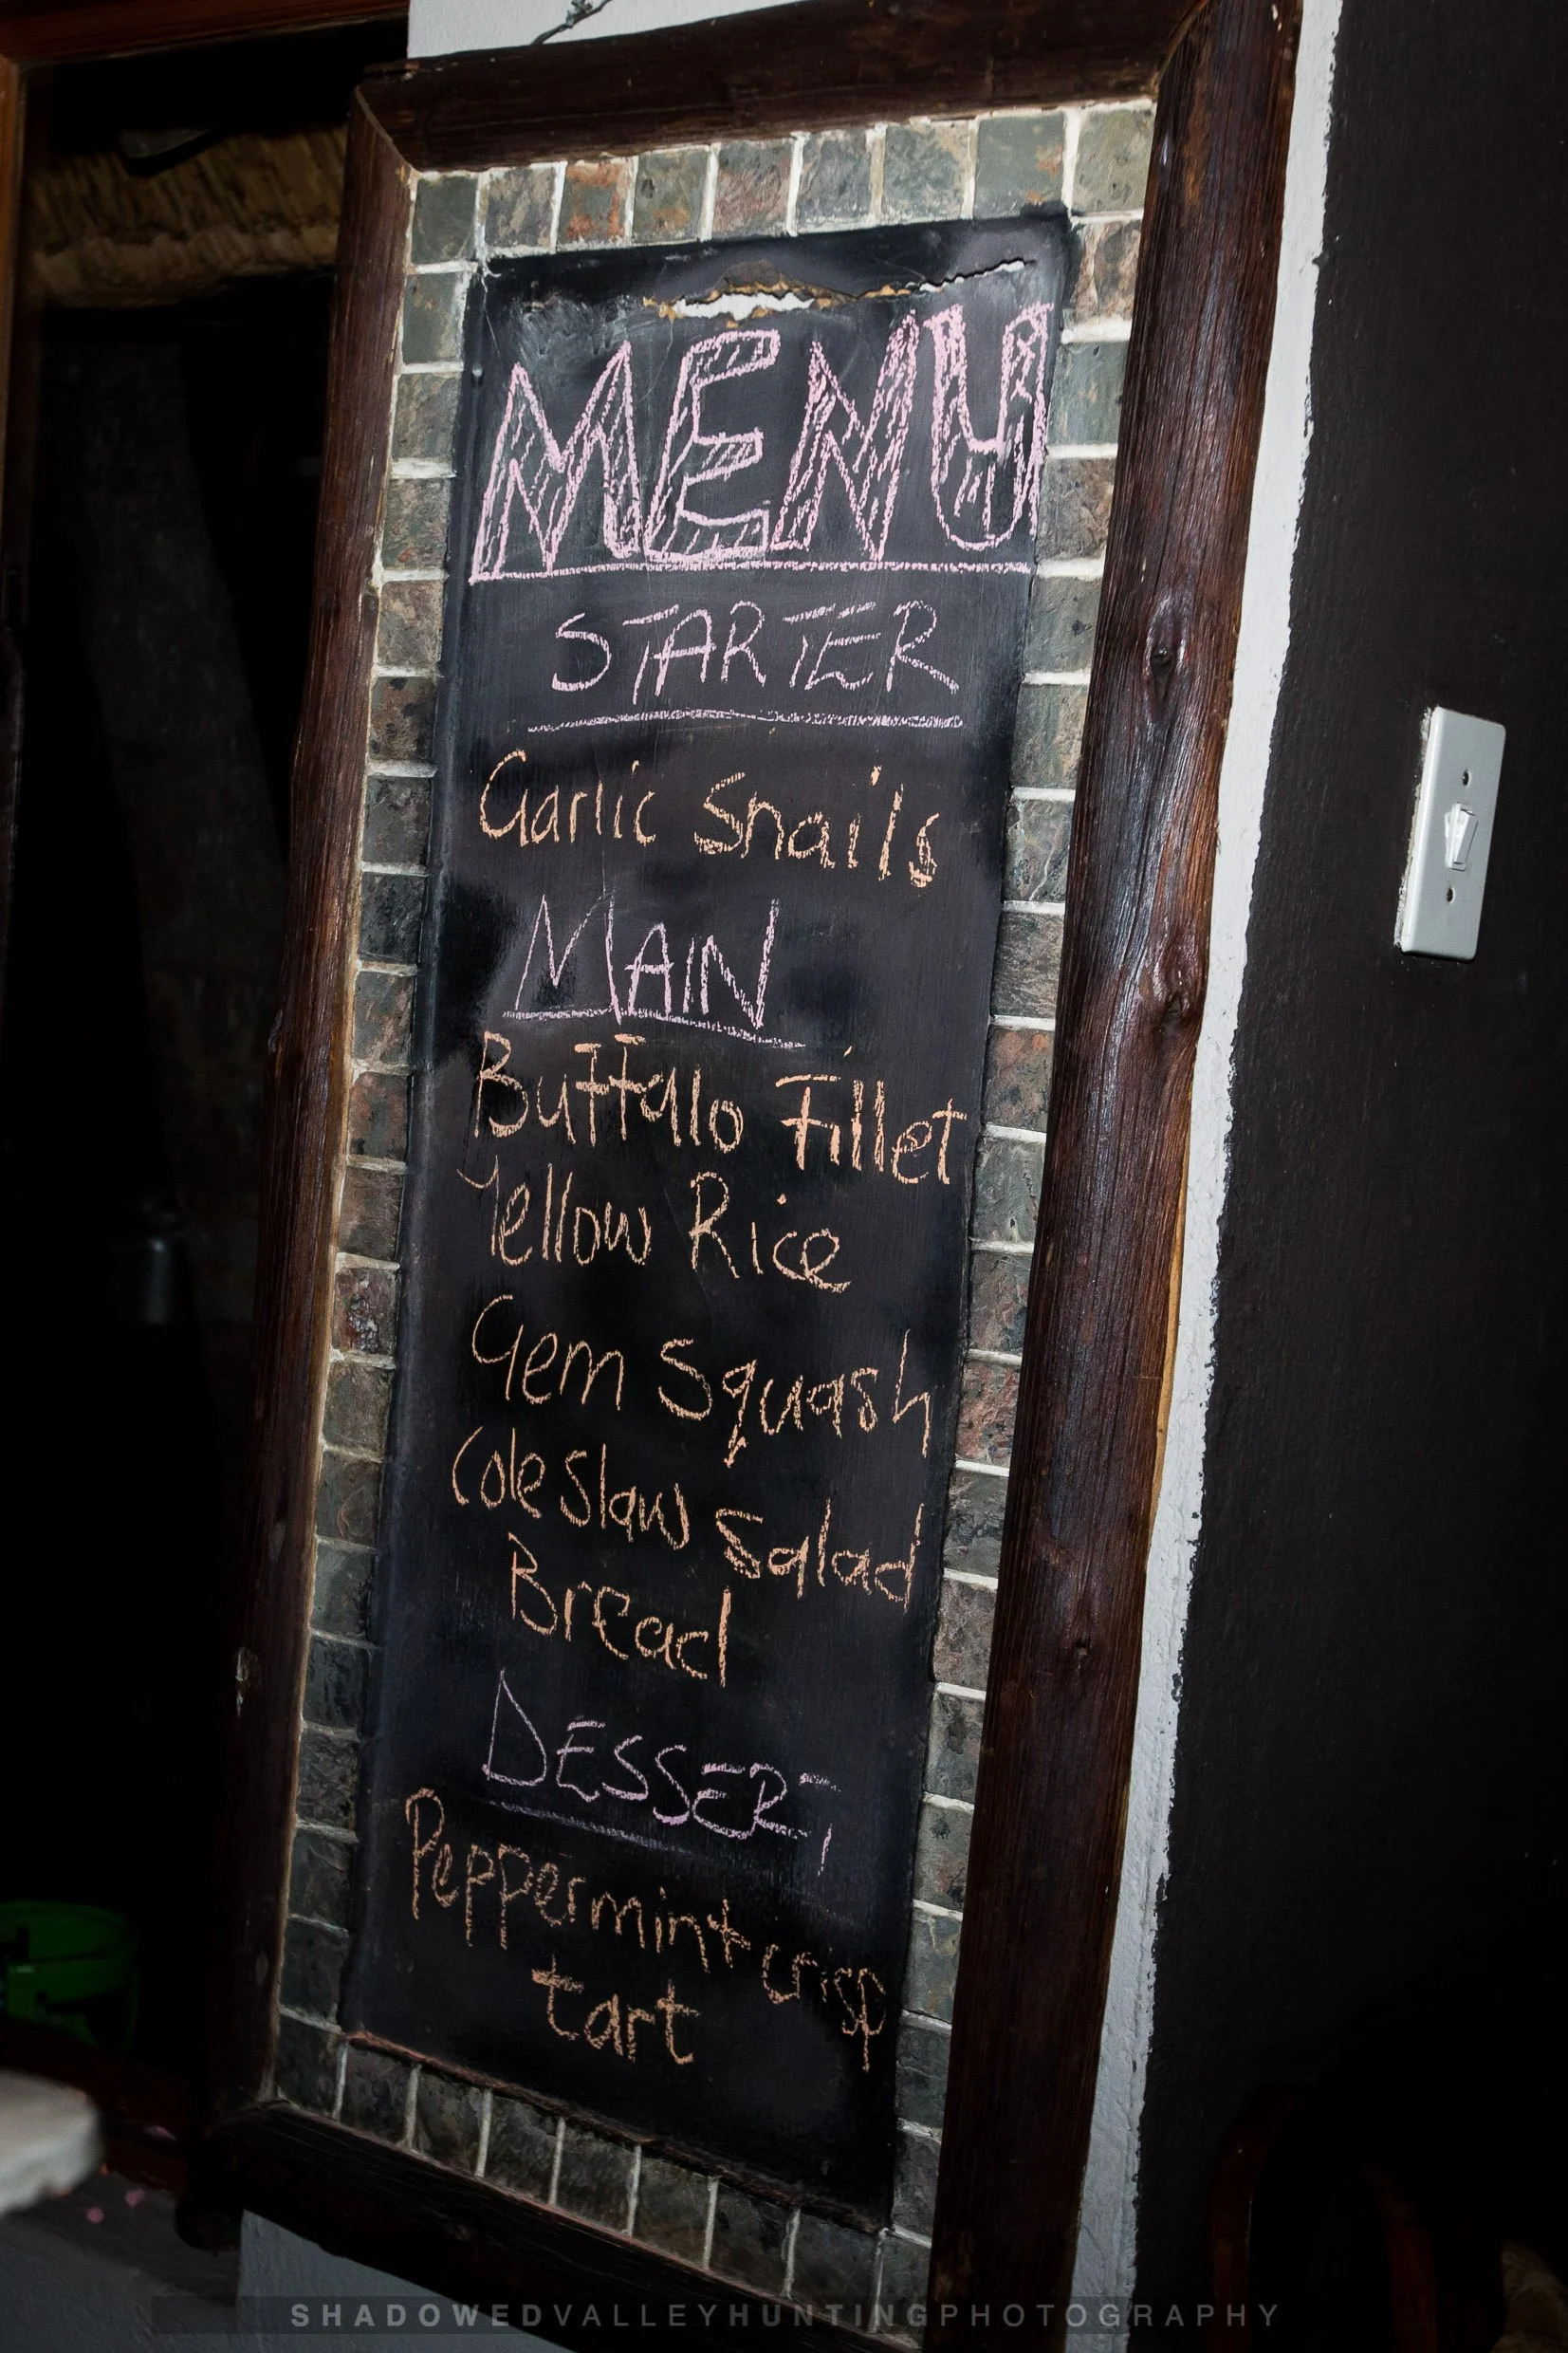 MENU
STARTER
Garlic Snails
MAIN
Buffalo Fillet
Yellow Rice
Gem Squash
Cole Slaw Salad
Bread
DESSERT
Peppermint crisp
tart
SHADOWEDVALLEYHUNTINGPHOTOGRAPHY